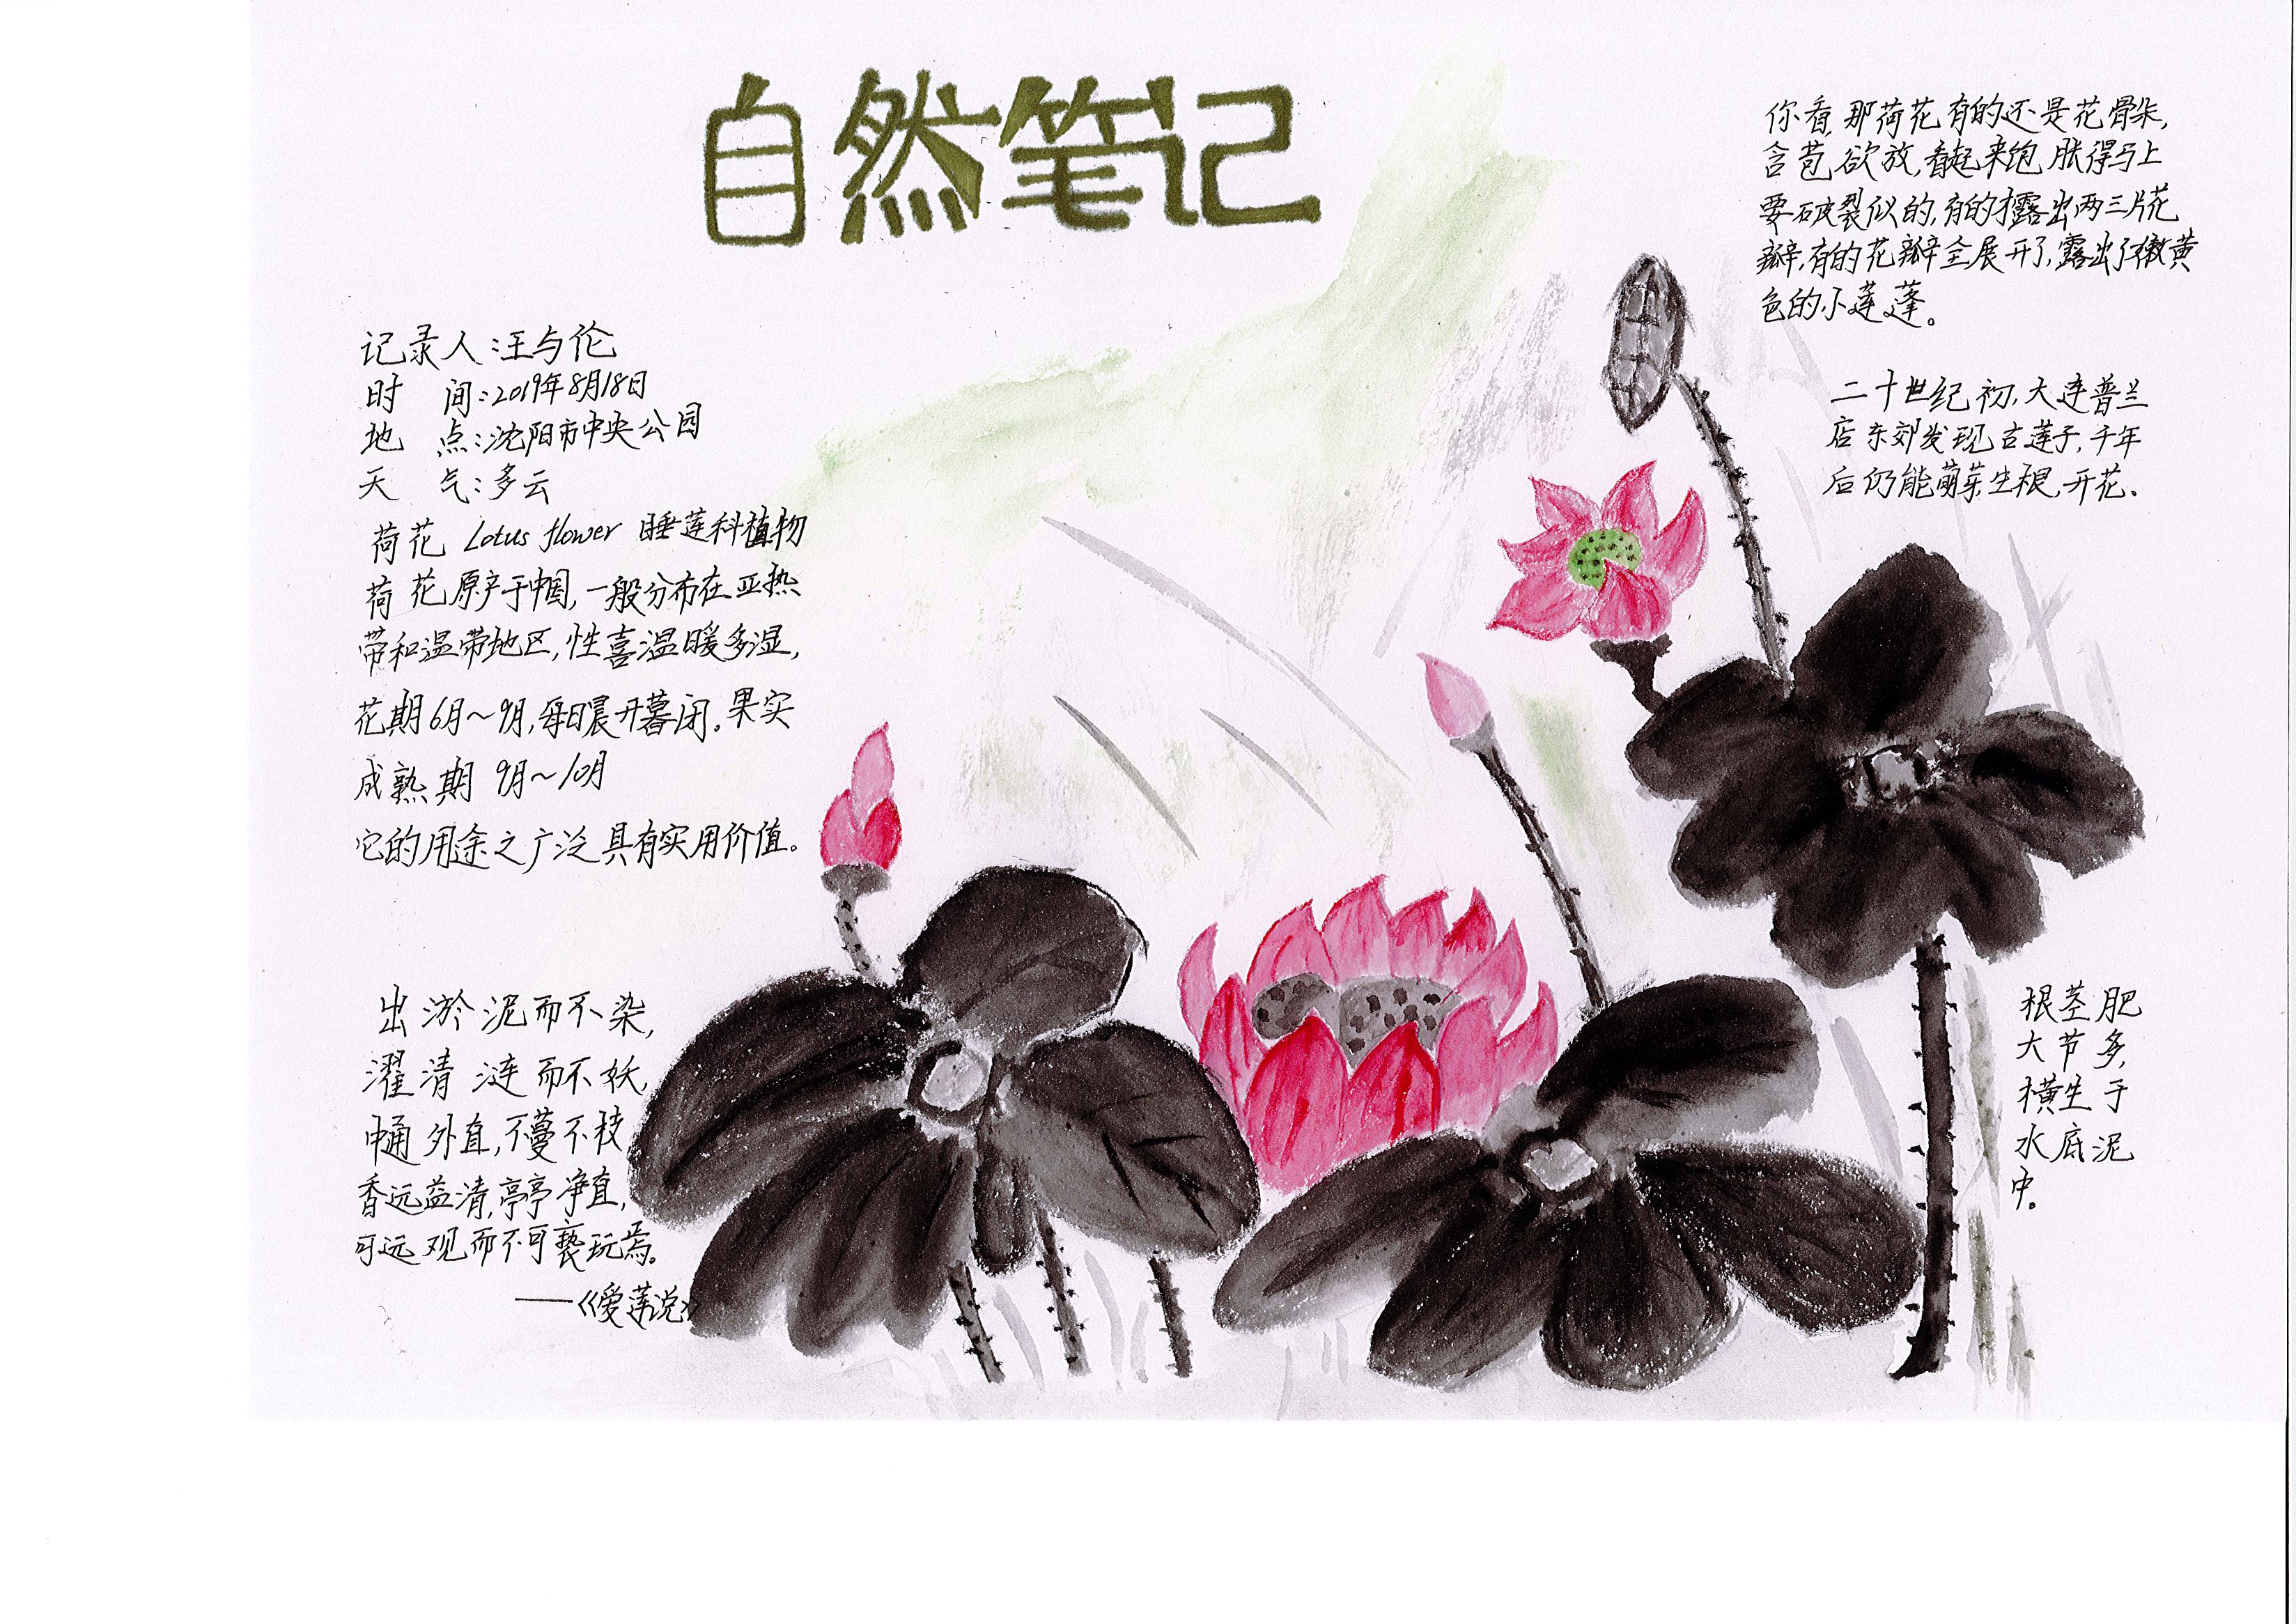 自然笔记
记录人:汪与伦
时 间:2019年8月18日
地 点:沈阳市中央公园
天 气:多云
荷花 Lotus flower 睡莲科植物
荷花原产于中国,一般分布在亚热
带和温带地区,性喜温暖多湿,
花期6月~9月,每日晨开暮闭。果实
成熟期 9月~10月
它的用途之广泛具有实用价值。
出淤泥而不染,
濯清涟而不妖,
中通外直,不蔓不枝
香远益清,亭亭净直,
可远观而不可亵玩焉。
——《爱莲说》
你看,那荷花有的还是花骨朵,
含苞欲放,看起来饱胀得马上
要破裂似的,有的才露出两三片花
瓣,有的花瓣全展开了,露出了嫩黄
色的小莲蓬。
二十世纪初,大连普兰
店东郊发现古莲子,千年
后仍能萌芽生根,开花.
根茎肥
大节多,
横生于
水底泥
中。